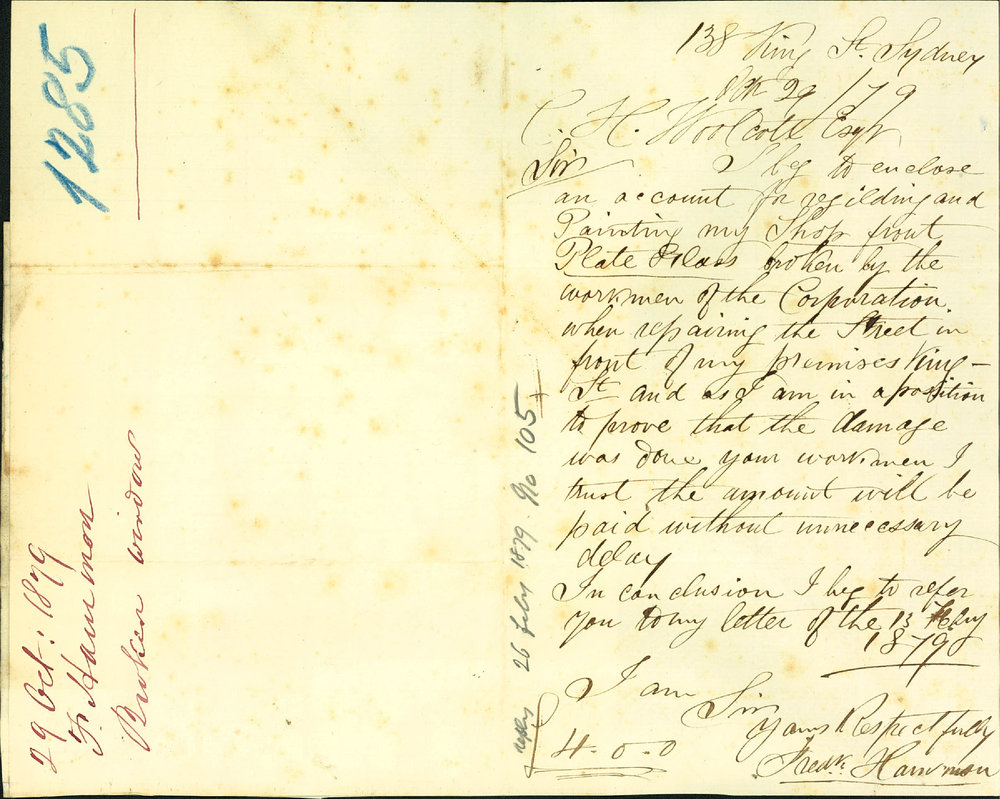 1285
29 Oct: 1879
F. Hammon
Broken window
reply 26 feby 1879. No 105
138 King St. Sydney
Oct 29 / 79
C. H. Woolcott Esqr
Sir I beg to enclose
an account for regilding and
Painting my Shop front
Plate Glass broken by the
workmen of the Corporation
when repairing the Street in
front of my premises King -
St and as I am in a position
to prove that the damage
was done your workmen I
trust the amount will be
paid without unnecessary
delay
In conclusion I beg to refer
you to my letter of the 13 Feby
1879
I am
Sir
Yours Respectfully
Fredk. Hammon
£ 4-0-0